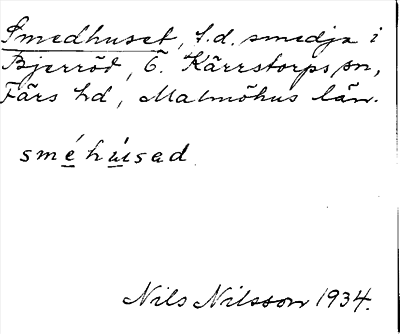 Smedhuset, f.d. smedja i
Bjerröd, Ö. Kärrstorps sn,
Färs hd, Malmöhus län.
sméhúsad
Nils Nilsson 1934.